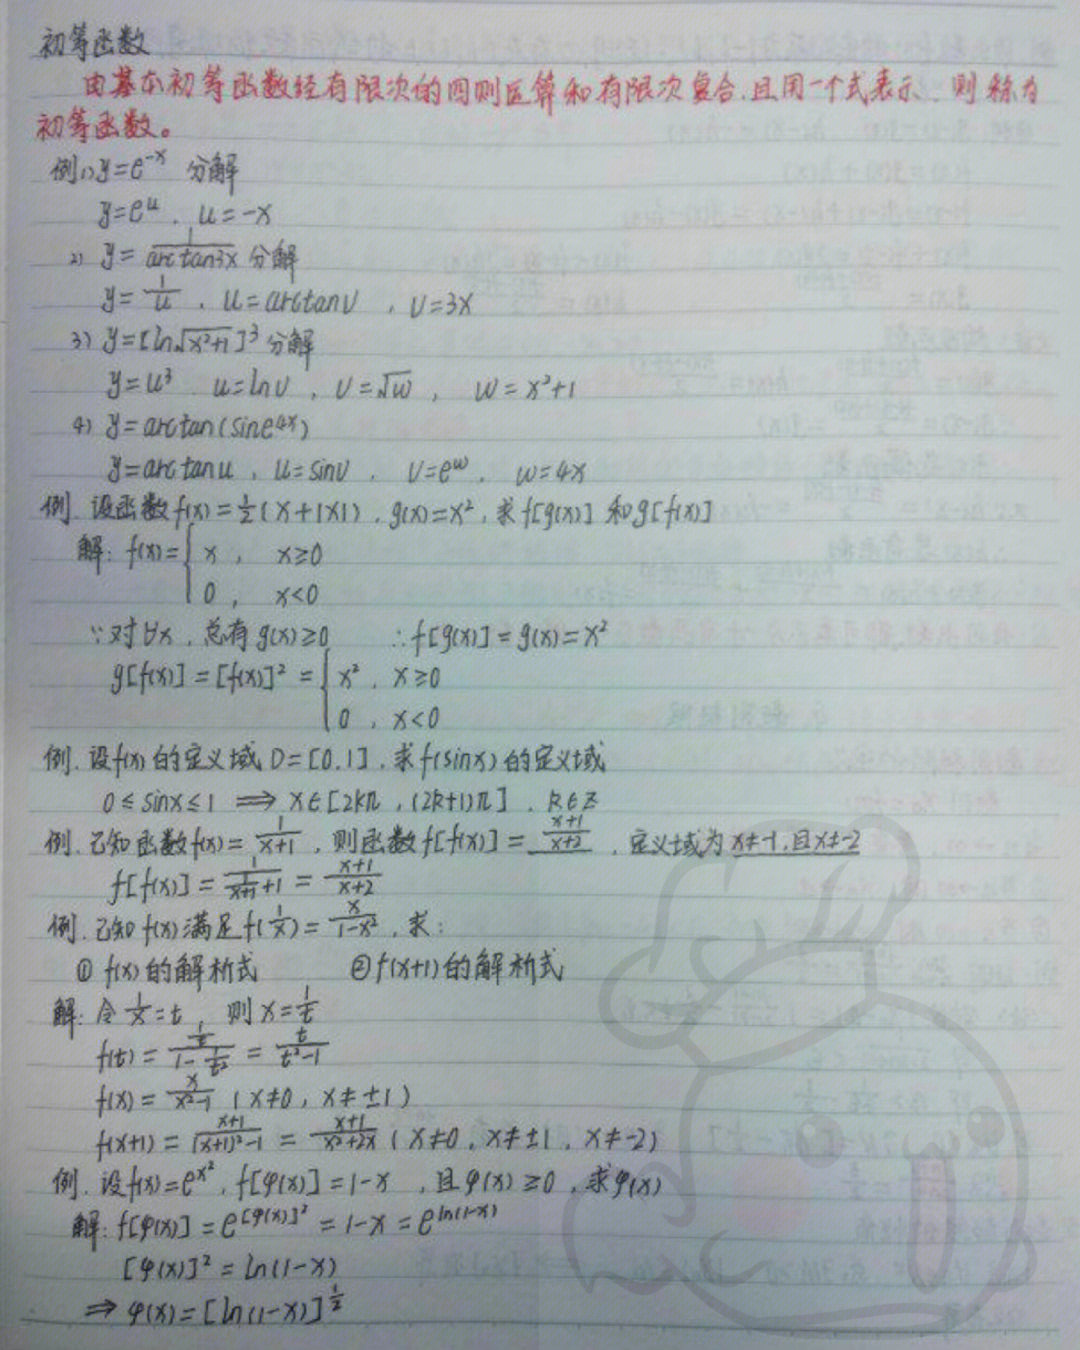 初等函数
由基本初等函数经有限次的四则运算和有限次复合,且用一个式表示,则称为
初等函数。
例1) y=e^{-x} 分解
y=e^u , u=-x
2) y=\frac{1}{arctan3x} 分解
y=\frac{1}{u} , u=arctanv , v=3x
3) y=[ln\sqrt{x²+1}]³ 分解
y=u³ u=lnv , v=\sqrt{w} , w=x²+1
4) y=arctan(sine^{4x})
y=arctanu , u=sinv , v=e^w , w=4x
例. 设函数f(x)=\frac{1}{2}(x+|x|) , g(x)=x² , 求f[g(x)] 和g[f(x)]
解: f(x)={ x , x≥0
0 , x<0
∵对∀x , 总有g(x)≥0 ∴f[g(x)]=g(x)=x²
g[f(x)]=[f(x)]²={ x² , x≥0
0 , x<0
例. 设f(x)的定义域D=[0,1] , 求f(sinx)的定义域
0≤sinx≤1 ⟹ x∈[2kπ , (2k+1)π] , k∈Z
例. 已知函数f(x)=\frac{1}{x+1} , 则函数f[f(x)]=\frac{x+1}{x+2} , 定义域为x≠-1,且x≠-2
f[f(x)]=\frac{1}{\frac{1}{x+1}+1}=\frac{x+1}{x+2}
例. 已知f(x)满足f(\frac{1}{x})=\frac{x}{1-x²} , 求:
① f(x)的解析式 ②f(x+1)的解析式
解: 令\frac{1}{x}=t , 则x=\frac{1}{t}
f(t)=\frac{\frac{1}{t}}{1-\frac{1}{t²}}=\frac{t}{t²-1}
f(x)=\frac{x}{x²-1} (x≠0 , x≠±1)
f(x+1)=\frac{x+1}{(x+1)²-1}=\frac{x+1}{x²+2x} (x≠0 , x≠±1 , x≠-2)
例. 设f(x)=e^{x²} , f[φ(x)]=1-x , 且φ(x)≥0 , 求φ(x)
解: f[φ(x)]=e^{[φ(x)]²}=1-x=e^{ln(1-x)}
[φ(x)]²=ln(1-x)
⇒ φ(x)=[ln(1-x)]^{\frac{1}{2}}